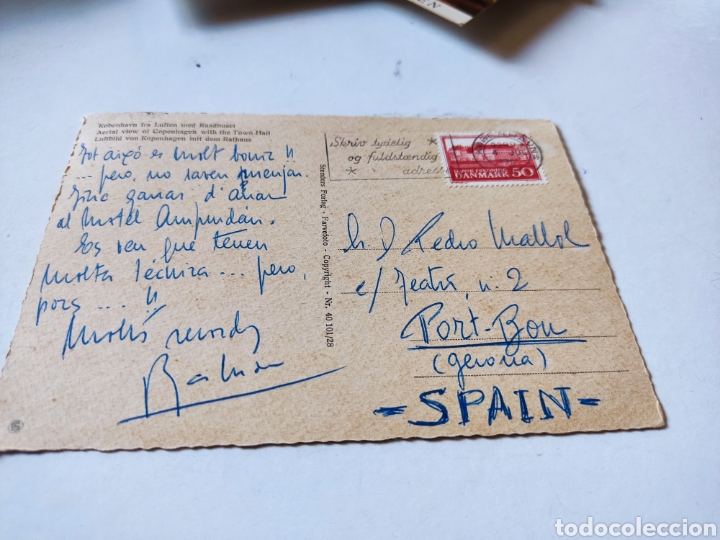 EN
København fra Luften med Raadhuset
Aerial view of Copenhagen with the Town Hall
Luftbild von Kopenhagen mit dem Rathaus
Tot aixó es molt bonic
... pero, no saven menjar.
Tinc ganas d'anar
al Motel Ampurdán.
Es veu que tenen
molta ... pero,
poca ...
Molts records
Stenders Forlag - Farvefoto - Copyright - Nr. 40 101/28
Skriv tydelig
og fuldstændig
adresse
DANMARK 50
Sr. D. Pedro Mallol
c/ Teatro, n. 2
Port-Bou
(Gerona)
-SPAIN-
todocoleccion